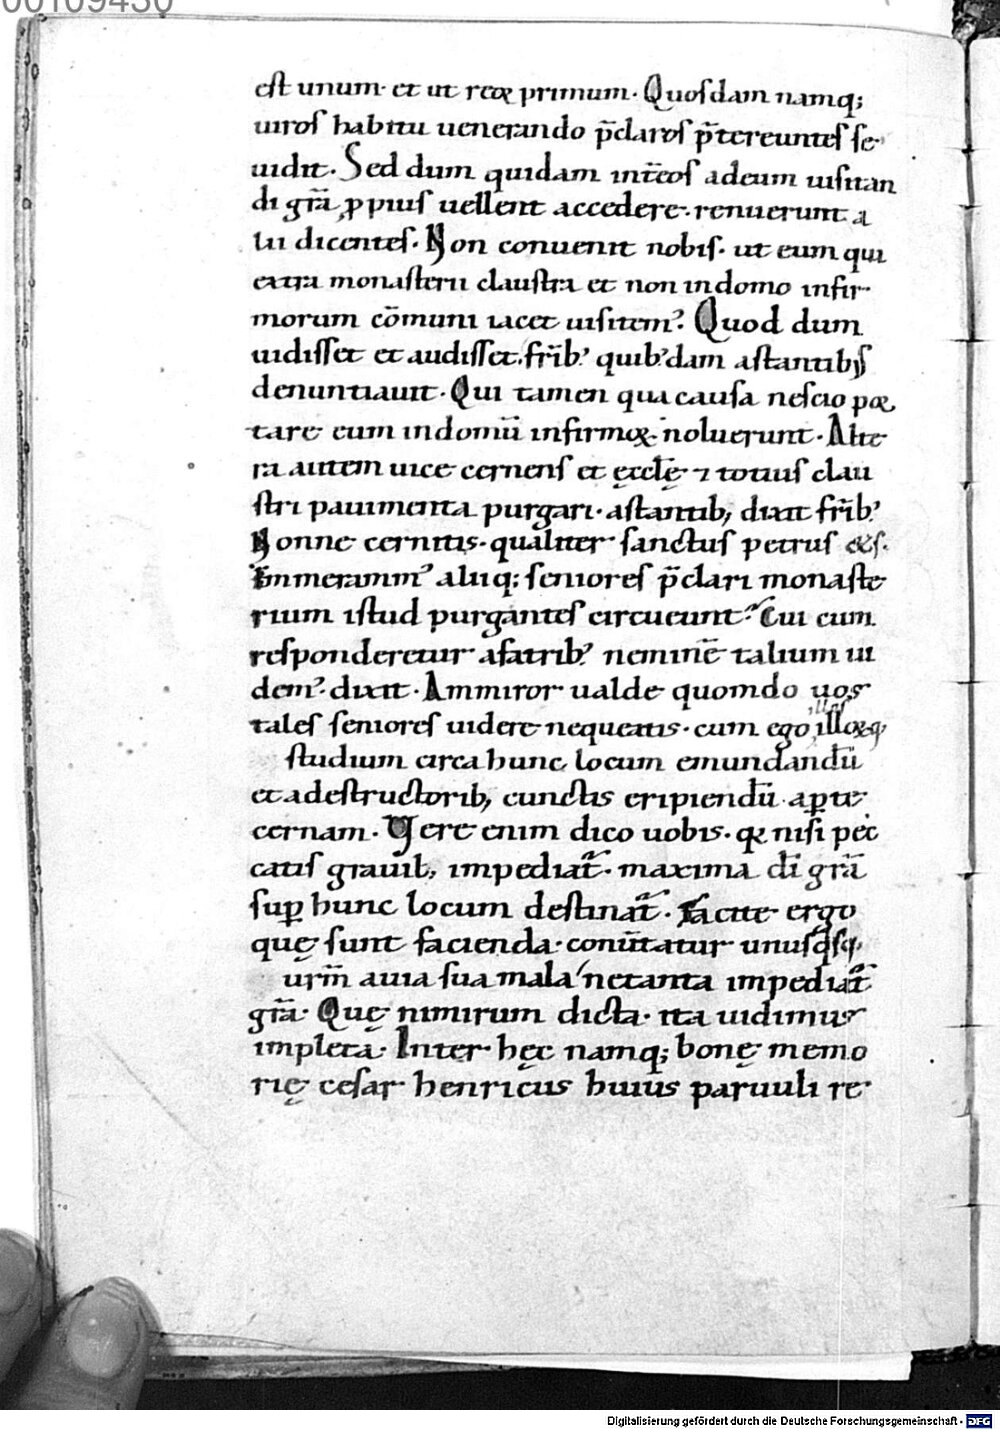 00109430
est unum· et ut reoꝝ primum· Quosdam namq;
uiros habitu uenerando p̄claros p̄tereuntes se
uidit· Sed dum quidam int̄eos adeum uisitan
di gr̄a ꝓpius uellent accedere· renuerunt a
lii dicentes· Non conuenit nobis· ut eum qui
extra monasterii claustra et non indomo infir
morum cōmuni iacet uisitem᾽? Quod dum
uidisset et audisset, fr̄ib᾽ quib᾽dam astantib;
denuntiauit· Qui tamen qua causa nescio por
tare eum indomū infirmoꝝ noluerunt· Alte
ra autem uice cernens et ęccl̄ę ⁊ totius clau
stri pauimenta purgari· astantib; dixit fr̄ib᾽
Nonne cernitis· qualiter sanctus petrus &s·
Emmeramm᾽ aliiq; seniores p̄clari monaste
rium istud purgantes circueunt? Cui cum
responderetur afatrib᾽ neminē talium ui
dem᾽· dixit· Ammiror ualde quomdo uos
tales seniores uidere nequeatis· cum ego illoꝝq;
studium circa hunc locum emundandū
et adestructorib; cunctis eripiendū aꝑte
cernam· Vere enim dico uobis· qꝛ nisi pec
catis grauib; impediat᷑· maxima dī gr̄a
suꝑ hunc locum destinat᷑· Facite ergo
quę sunt facienda· conūtatur unusqsq;
urm̄ auia sua mala netanta impediat᷑
gr̄a· Quę nimirum dicta· ita uidimus
impleta· Inter hęc namq; bonę memo
rię cesar henricus huius paruuli re
Digitalisierung gefördert durch die Deutsche Forschungsgemeinschaft - DFG